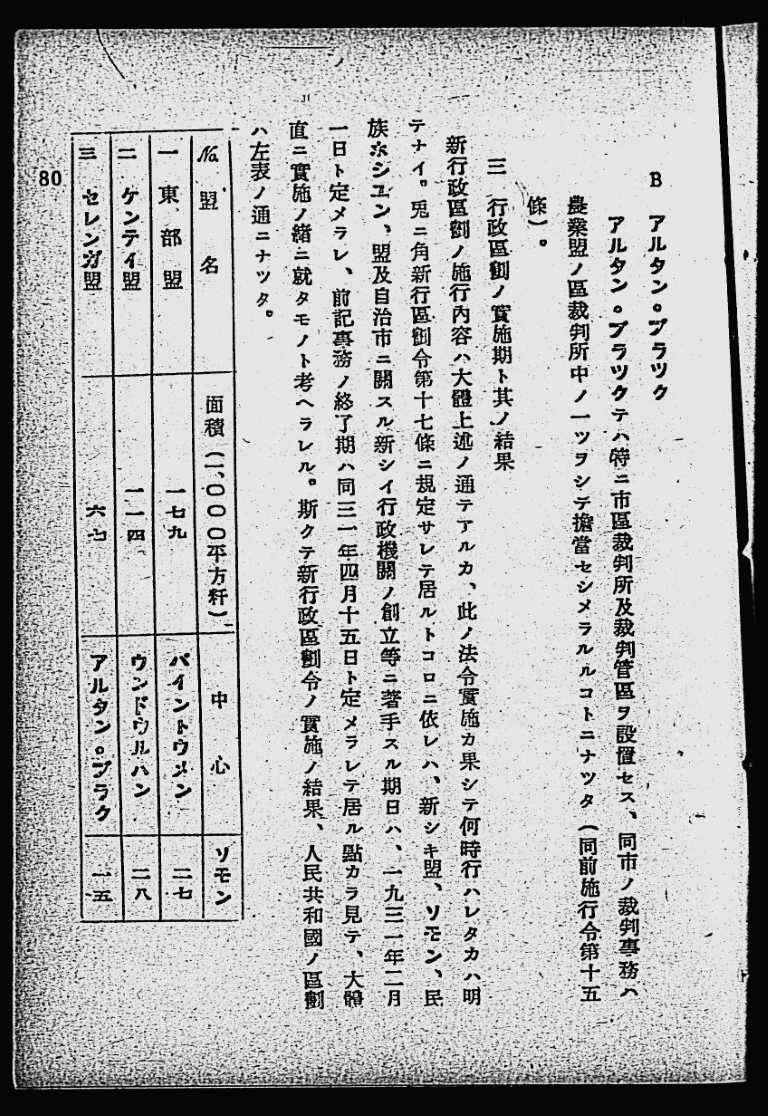 B アルタン。ブラツク
アルタン。ブラツクテハ特ニ市區裁判所及裁判管區ヲ設置セス、同市ノ裁判事務ハ
農業盟ノ區裁判所中ノ一ツヲシテ擔當セシメラルルコトニナツタ（同前施行令第十五
條）。
三 行政區劃ノ實施期ト其ノ結果
新行政區劃ノ施行內容ハ大體上述ノ通テアルカ、此ノ法令實施カ果シテ何時行ハレタカハ明
テナイ。兎ニ角新行區劃令第十七條ニ規定サレテ居ルトコロニ依レハ、新シキ盟、ソモン、民
族ホシユン、盟及自治市ニ關スル新シイ行政機關ノ創立等ニ著手スル期日ハ、一九三一年二月
一日ト定メラレ、前記事務ノ終了期ハ同三一年四月十五日ト定メラレテ居ル點カラ見テ、大體
直ニ實施ノ緖ニ就タモノト考ヘラレル。斯クテ新行政區劃令ノ實施ノ結果、人民共和國ノ區劃
ハ左表ノ通ニナツタ。
№ 盟名 面積（一、〇〇〇平方粁） 中心 ソモン
一 東部盟 一七九 バイントウメン 二七
二 ケンテイ盟 一一四 ウンドウルハン 二八
三 セレンガ盟 六七 アルタン。ブラク 一五
80